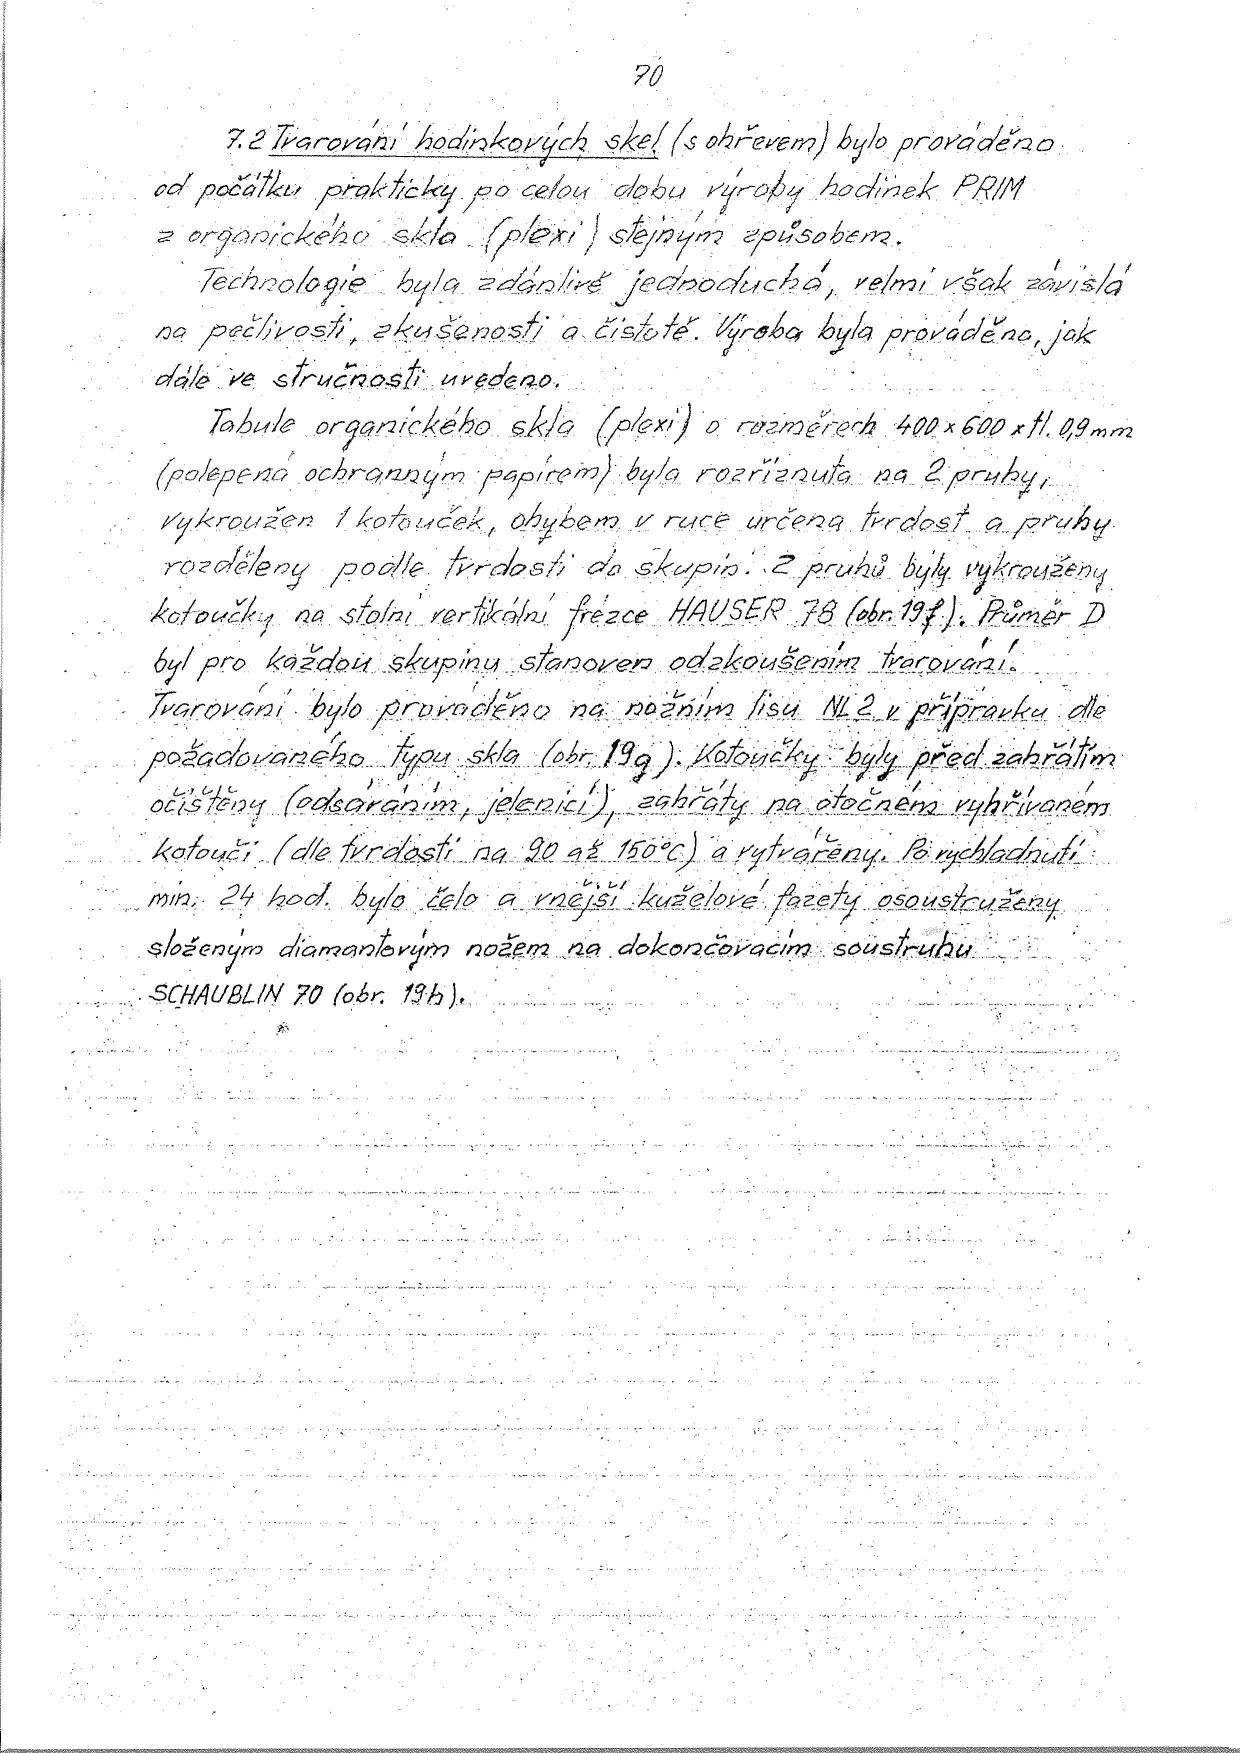 70
7.2 Tvarování hodinkových skel (s ohřevem) bylo prováděno
od počátku prakticky po celou dobu výroby hodinek PRIM
z organického skla (plexi) stejným způsobem.
Technologie byla zdánlivě jednoduchá, velmi však závislá
na pečlivosti, zkušenosti a čistotě. Výroba byla prováděna, jak
dále ve stručnosti uvedeno.
Tabule organického skla (plexi) o rozměrech 400 x 600 x tl. 0,9 mm
(polepená ochranným papírem) byla rozříznuta na 2 pruhy,
vykroužen 1 kotouček, ohybem v ruce určena tvrdost a pruhy
rozděleny podle tvrdosti do skupin. Z pruhů byly vykrouženy
kotoučky na stolní vertikální frézce HAUSER 78 (obr. 19f). Průměr D
byl pro každou skupinu stanoven odzkoušením tvarování.
Tvarování bylo prováděno na nožním lisu NL2 v přípravku dle
požadovaného typu skla (obr. 19g). Kotoučky byly před zahřátím
očištěny (odsáváním, jelenicí), zahřáty na otočném vyhřívaném
kotouči (dle tvrdosti na 90 až 150°C) a vytvářeny. Po vychladnutí
min. 24 hod. bylo čelo a vnější kuželové fazety osoustruženy
složeným diamantovým nožem na dokončovacím soustruhu
SCHAUBLIN 70 (obr. 19h).